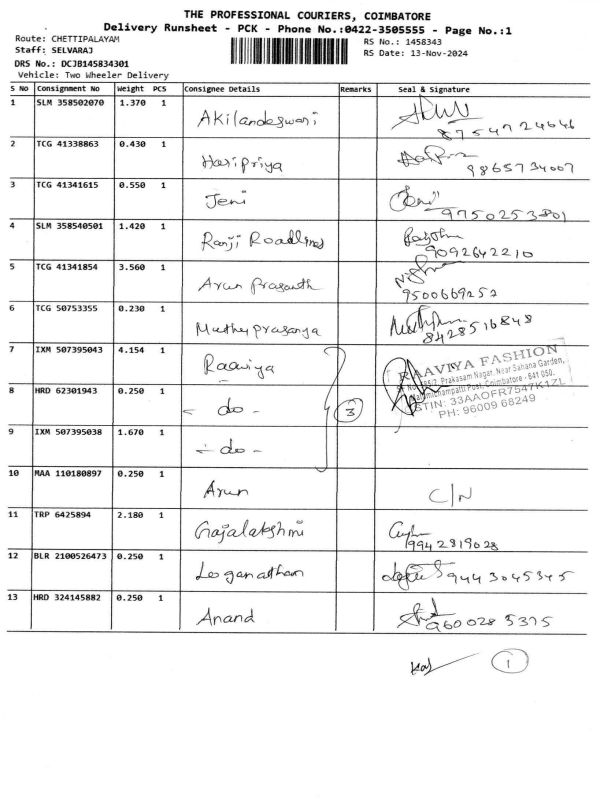 THE PROFESSIONAL COURIERS, COIMBATORE
Delivery Runsheet - PCK - Phone No.:0422-3505555 - Page No.:1
Route: CHETTIPALAYAM
RS No.: 1458343
Staff: SELVARAJ
RS Date: 13-Nov-2024
DRS No.: DCJB145834301
Vehicle: Two Wheeler Delivery
S No Consignment No Weight PCS Consignee Details Remarks Seal & Signature
1 SLM 358502070 1.370 1 Akilandeswari 8754724646
2 TCG 41338863 0.430 1 Haripriya 9865734007
3 TCG 41341615 0.550 1 Jeni Jeni 9750253801
4 SLM 358540501 1.420 1 Ranji Roadlines 9092642210
5 TCG 41341854 3.560 1 Arun Prasanth 9500669252
6 TCG 50753355 0.230 1 Muthuprasanya 8428516848
7 IXM 507395043 4.154 1 Raaviya
RAAVIYA FASHION
Prakasam Nagar, Near Sahana Garden,
Post, Coimbatore - 641 050.
GSTIN: 33AAOFR7547K1ZL
PH: 96009 68249
8 HRD 62301943 0.250 1 - do - 3
9 IXM 507395038 1.670 1 - do -
10 MAA 110180897 0.250 1 Arun C/N
11 TRP 6425894 2.180 1 Gajalakshmi 9942819028
12 BLR 2100526473 0.250 1 Loganathan 9443045345
13 HRD 324145882 0.250 1 Anand 9600285375
1